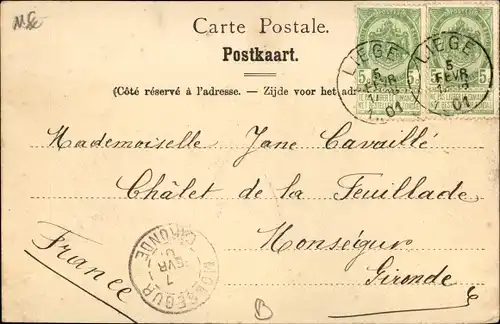 Carte Postale.
Postkaart.
(Côté réservé à l'adresse. – Zijde voor het adr
LIEGE
5
FEVR
1901
LIEGE
5
FEVR
1901
5 5
5 5
Mademoiselle Jane Cavaillé
Châlet de la Feuillade
Monségur
Gironde
France
MONSEGUR GIRONDE
7
FEVR
B